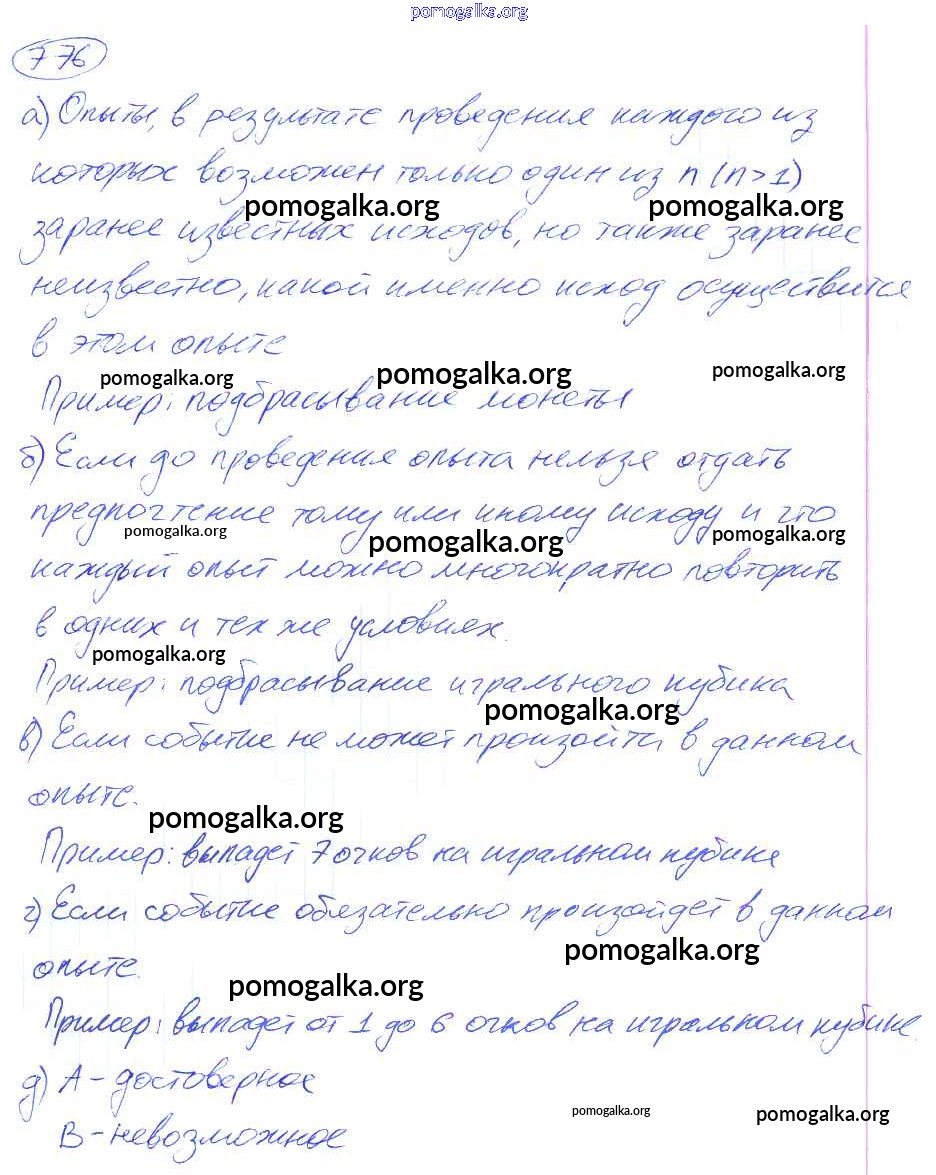 pomogalka.org
776
а) Опыты, в результате проведения каждого из
которых возможен только один из n (n > 1)
pomogalka.org pomogalka.org
заранее известных исходов, но также заранее
неизвестно, какой именно исход осуществится
в этом опыте
pomogalka.org pomogalka.org pomogalka.org
Пример: подбрасывание монеты
б) Если до проведения опыта нельзя отдать
предпочтение тому или иному исходу и что
pomogalka.org pomogalka.org pomogalka.org
каждый опыт можно многократно повторить
в одних и тех же условиях.
pomogalka.org
Пример: подбрасывание игрального кубика
pomogalka.org
в) Если событие не может произойти в данном
опыте.
pomogalka.org
Пример: выпадет 7 очков на игральном кубике
г) Если событие обязательно произойдет в данном
pomogalka.org
опыте.
pomogalka.org
Пример: выпадет от 1 до 6 очков на игральном кубике.
д) А - достоверное
pomogalka.org pomogalka.org
В - невозможное